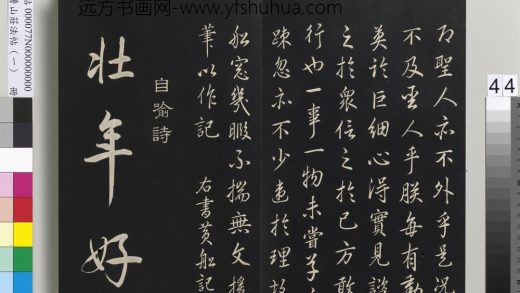 远方书画网-www.yfshuhua.com
聖人亦不外乎是況
不及聖人乎朕每有動
於巨細心得實見諮
之於眾信之於己方敢
行也一事一物未嘗草
疎忽亦不少違於理故
船窓幾暇不揣無文援
筆以作記
右書黃船記
自喻詩
壯年好
000077N000000000
山莊法帖(一) 冊
44